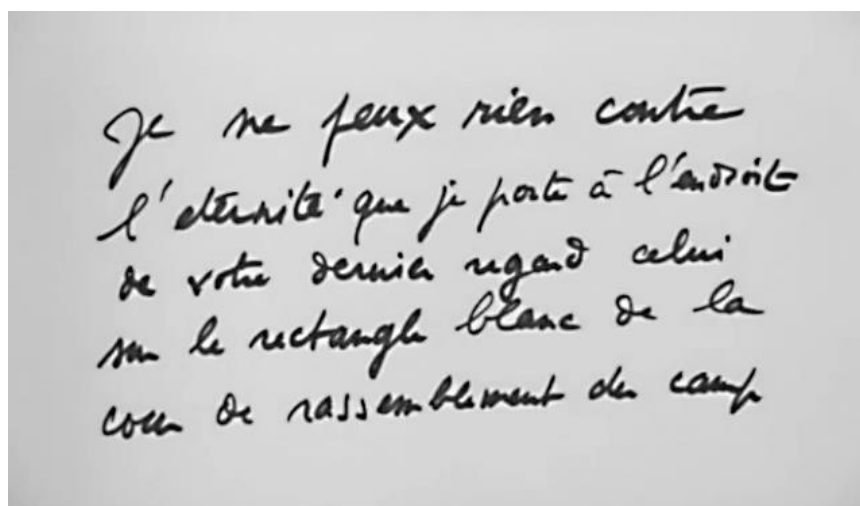 Je ne peux rien contre
l'eternité que je porte à l'endroit
de votre dernier regard celui
sur le rectangle blanc de la
cour de rassemblement du camp